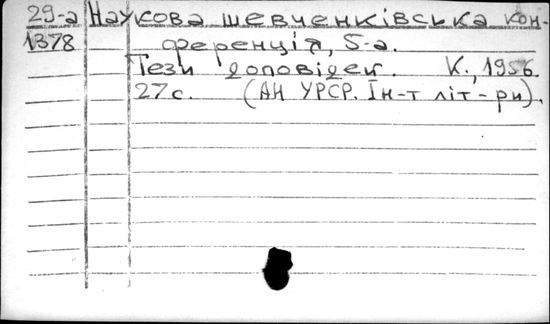 29-а Наукова шевченківська кон-
1378 ференція, 5-а.
Тези доповідей. К., 1956.
27 с. (АН УРСР. Ін-т літ-ри).